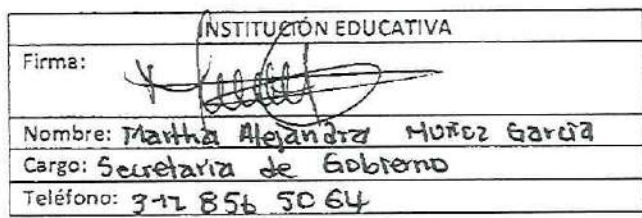 INSTITUCIÓN EDUCATIVA
Firma:
Nombre: Martha Alejandra Muñoz García
Cargo: Secretaria de Gobierno
Teléfono: 312 856 5064